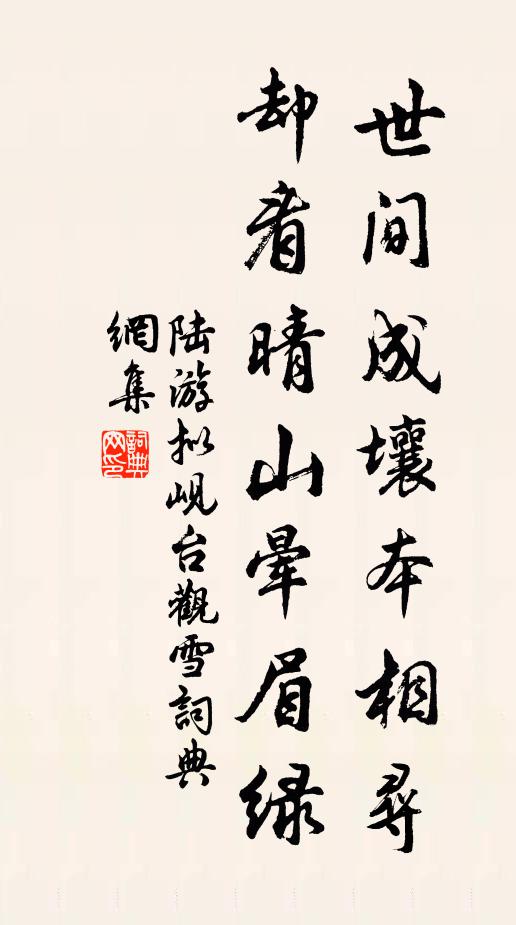 世间成壤本相寻
却看晴山晕眉绿
陆游拟岘台觀雪詞典
網集
詞典网印